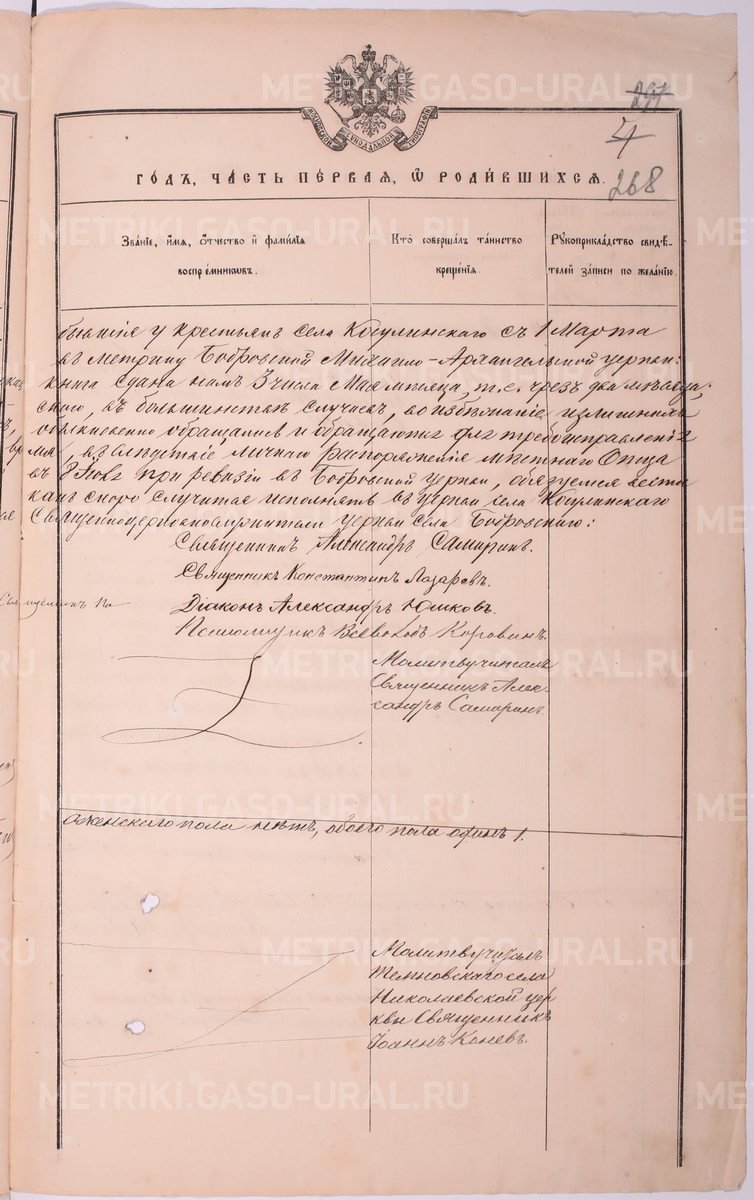 МОСКОВСКОЙ СУНОДАЛЬНОЙ ТИПОГРАФІИ
4
268
ГО́ДЪ, ЧА́СТЬ ПЕ́РВАЯ, Ѡ҆ РОДИ́ВШИХСЯ.
ЗВА́НІЕ, И҆́МЯ, Ѻ҆́ТЧЕСТВО И҆ ФАМИ́ЛІЯ
ВОСПРІЕ́МНИКѠВЪ.
КТО̀ СОВЕРША́ЛЪ ТА́ИНСТВО
КРЕЩЕ́НІЯ.
РУКОПРИКЛА́ДСТВО СВИДѢ́-
ТЕЛЕЙ ЗА́ПИСИ ПО ЖЕЛА́НІЮ.
бывшія у крестьянъ села Косулинскаго съ 1 Марта
въ метрику Бобровской Михаило-Архангельской церкви:
книга сдана намъ 3 числа Мая мѣсяца, т.е. чрезъ два мѣсяца;
въ большинствѣ случаевъ, во избѣжаніе излишнихъ
обыкновенно обращались и обращаются для требоисправленій
вслѣдствіе личнаго распоряженія мѣстнаго Отца
при ревизіи въ Бобровской церкви, обязуемся вести
какъ скоро случится исполнять въ церкви села Косулинскаго
Священноцерковнослужители церкви села Бобровскаго:
Священникъ Александръ Самаринъ.
Священникъ Константинъ Лазаревъ.
Діаконъ Александръ Юшковъ.
Псаломщикъ Всеволодъ Коровинъ.
Молитву читалъ
Священникъ Алек-
сандръ Самаринъ.
а женскаго пола нѣтъ, обоего пола одинъ 1.
Молитву читалъ
Темновскаго села
Николаевской цер
кви Священникъ
Іоаннъ Коневъ.
METRIKI.GASO-URAL.RU